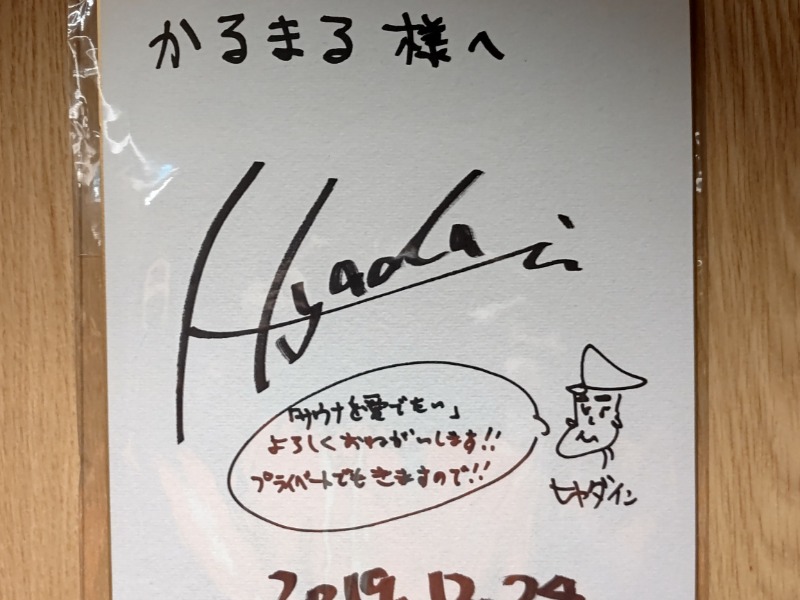 かるまる 様へ
Hyadain
「サウナを愛でたい」
よろしくおねがいします!!
プライベートでもきますので!!
ヒャダイン
2019.12.24